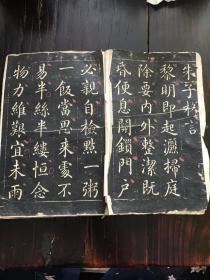 朱子格言
黎明即起灑掃庭
除要內外整潔既
昏便息關鎖門戶
必親自檢點一粥
一飯當思來處不
易半絲半縷恒念
物力維艱宜未雨